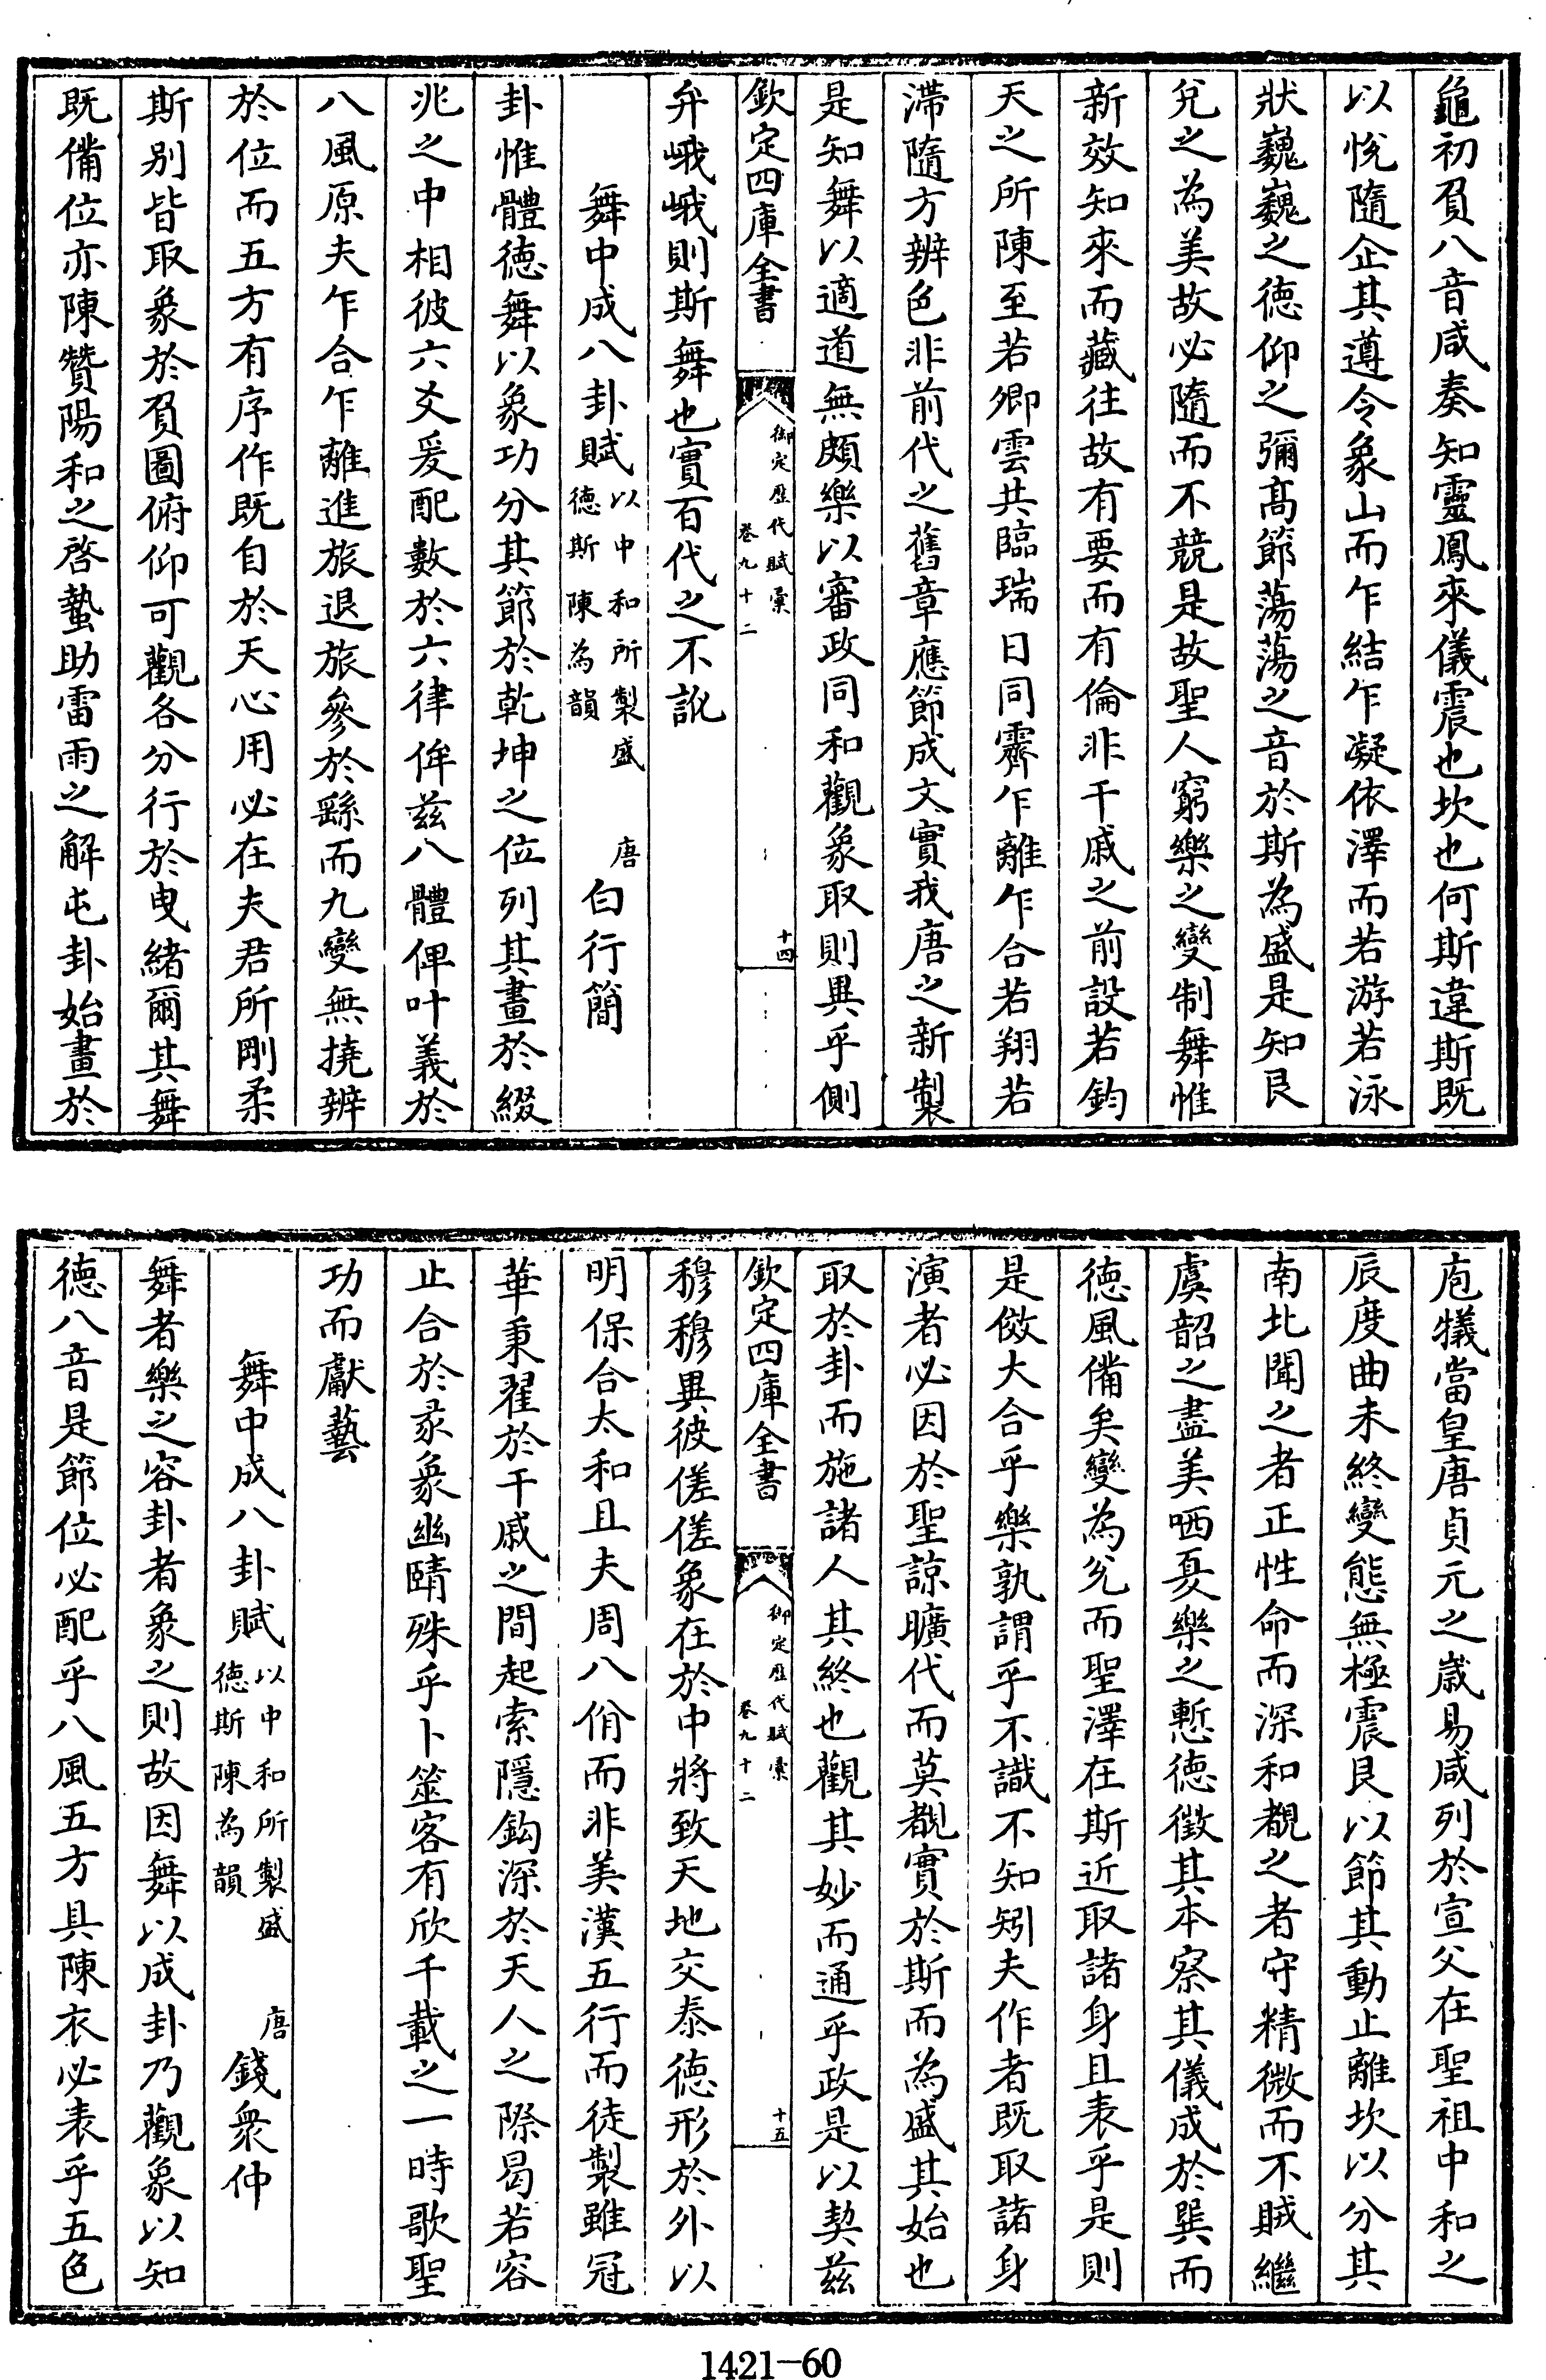 龜初負八音咸奏知靈鳳來儀震也坎也何斯違斯既
以悅隨企其遵令象山而乍結乍凝依澤而若游若泳
狀巍巍之德仰之彌高節蕩蕩之音於斯為盛是知艮
兌之為美故必隨而不競是故聖人窮樂之變制舞惟
新效知來而藏往故有要而有倫非干戚之前設若鈞
天之所陳至若卿雲共臨瑞日同霽乍離乍合若翔若
滯隨方辨色非前代之舊章應節成文實我唐之新製
是知舞以適道無頗樂以審政同和觀象取則異乎側
欽定四庫全書
御定歷代賦彙
卷九十二
十四
弁峨峨則斯舞也實百代之不訛
舞中成八卦賦以中和所製盛德斯陳為韻 唐白行簡
卦惟體德舞以象功分其節於乾坤之位列其畫於綴
兆之中相彼六爻爰配數於六律侔茲八體俾叶義於
八風原夫乍合乍離進旅退旅參於繇而九變無撓辨
於位而五方有序作既自於天心用必在夫君所剛柔
斯別皆取象於負圖俯仰可觀各分行於曳緒爾其舞
既備位亦陳贊陽和之啓蟄助雷雨之解屯卦始畫於
庖犧當皇唐貞元之歲易咸列於宣父在聖祖中和之
辰度曲未終變態無極震艮以節其動止離坎以分其
南北聞之者正性命而深和覩之者守精微而不賊繼
虞韶之盡美哂夏樂之慙德徵其本察其儀成於巽而
德風備矣變為兌而聖澤在斯近取諸身且表乎是則
是傚大合乎樂孰謂乎不識不知矧夫作者既取諸身
演者必因於聖諒曠代而莫覩實於斯而為盛其始也
取於卦而施諸人其終也觀其妙而通乎政是以契茲
欽定四庫全書
御定歷代賦彙
卷九十二
十五
穆穆異彼傞傞象在於中將致天地交泰德形於外以
明保合太和且夫周八佾而非美漢五行而徒製雖冠
華秉翟於干戚之間起索隱鈎深於天人之際曷若容
止合於彖象幽賾殊乎卜筮客有欣千載之一時歌聖
功而獻藝
舞中成八卦賦以中和所製盛德斯陳為韻 唐錢衆仲
舞者樂之容卦者象之則故因舞以成卦乃觀象以知
德八音是節位必配乎八風五方具陳衣必表乎五色
1421-60